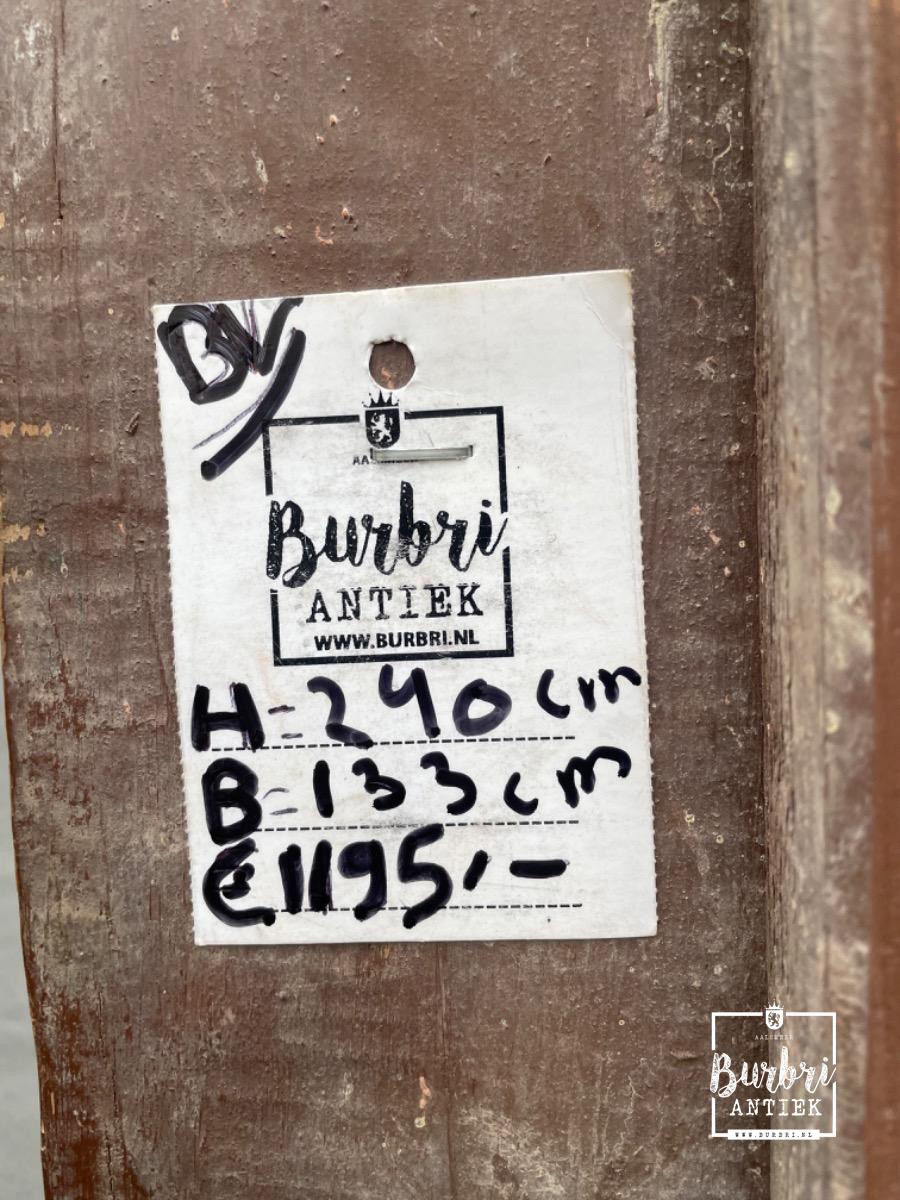 BV
Burbri
ANTIEK
WWW.BURBRI.NL
H=240 cm
B=133cm
€1195,-
AALSMEER
Burbri
ANTIEK
WWW.BURBRI.NL